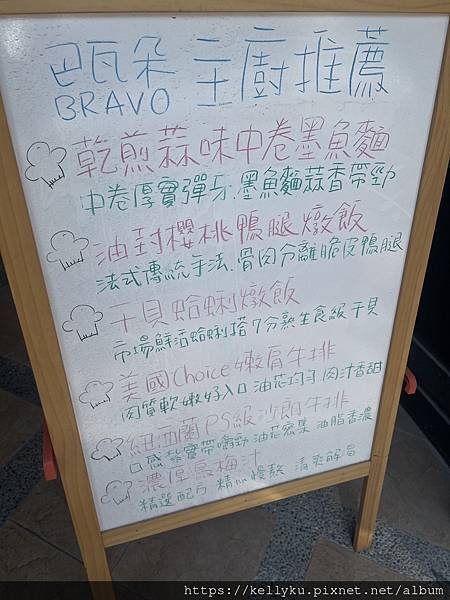 巴瓦朵 主廚推薦
BRAVO
乾煎蒜味中卷墨魚麵
中卷厚實彈牙.墨魚麵蒜香帶勁
油封櫻桃鴨腿燉飯
法式傳統手法.骨肉分離脆皮鴨腿
干貝蛤蜊燉飯
市場鮮活蛤蜊搭7分熟生食級干貝
美國Choice嫩肩牛排
肉質軟嫩好入口 油花均勻 肉汁香甜
紐西蘭PS級沙朗牛排
口感紮實帶嚼勁 油花密集 油脂香濃
濃厚烏梅汁
精選配方 精心慢熬 清爽解膩
https://kellyku.pixnet.net/album